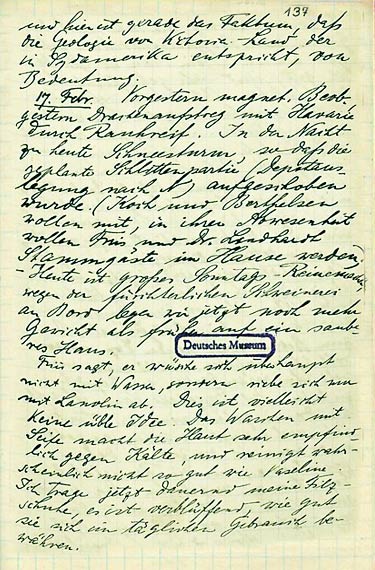 137
und hier ist gerade das Faktum, daß
die Geologie von Victoria-Land der
in Südamerika entspricht, von
Bedeutung.
17. Febr. Vorgestern magnet. Beob.
gestern Drachenaufstieg mit Havarie
durch Rauhreif. In der Nacht
zu heute Schneesturm, so daß die
geplante Schlittenpartie (Depotaus-
legung nach N) aufgeschoben
wurde (Koch und Bertelsen
wollen mit, in ihrer Abwesenheit
wollen Friis und Dr. Lindhardt
Stammgäste im Hause werden)
- Heute ist großes Sonntags-Reinemachen
wegen der fürchterlichen Schweinerei
an Bord legen wir jetzt noch mehr
Gewicht als früher auf ein saube-
res Haus.
Deutsches Museum
Friis sagt, er wüsche sich überhaupt
nicht mit Wasser, sondern riebe sich nur
mit Lanolin ab. Dies ist vielleicht
keine üble Idee. Das Waschen mit
Seife macht die Haut sehr empfind-
lich gegen Kälte und reinigt wahr-
scheinlich nicht so gut wie Vaseline.
Ich trage jetzt dauernd meine Filz-
schuhe, es ist verblüffend, wie gut
sie sich im täglichen Gebrauch be-
währen.